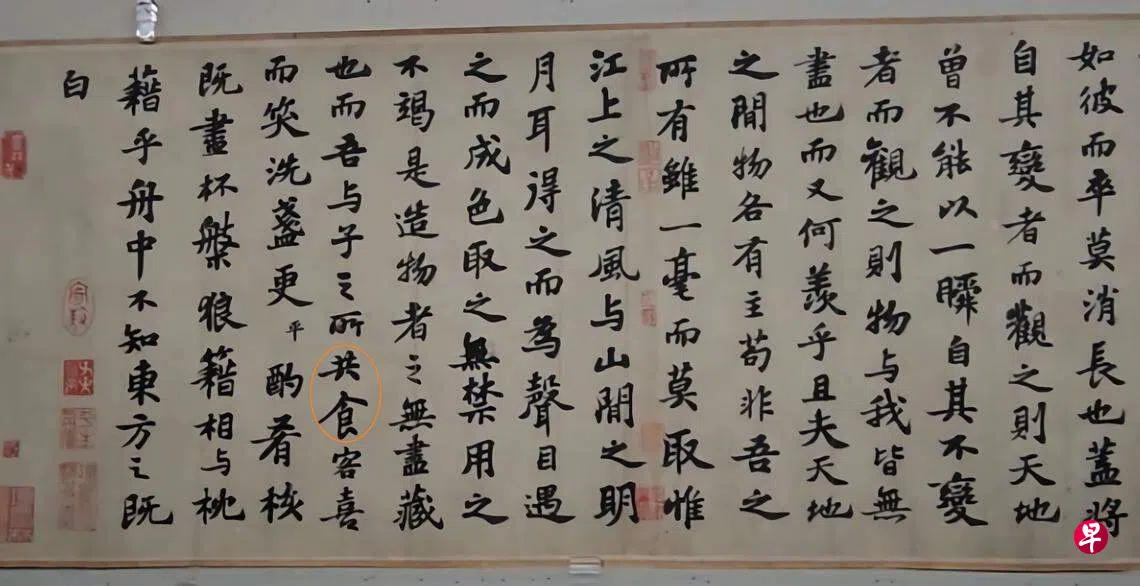 如彼而卒莫消長也蓋將
自其變者而觀之則天地
曾不能以一瞬自其不變
者而觀之則物与我皆無
盡也而又何羨乎且夫天地
之間物各有主苟非吾之
所有雖一毫而莫取惟
江上之清風与山間之明
月耳得之而為聲目遇
之而成色取之無禁用之
不竭是造物者之無盡藏
也而吾与子之所共食客喜
而笑洗盞更平酌肴核
既盡杯槃狼籍相与枕
藉乎舟中不知東方之既
白
早